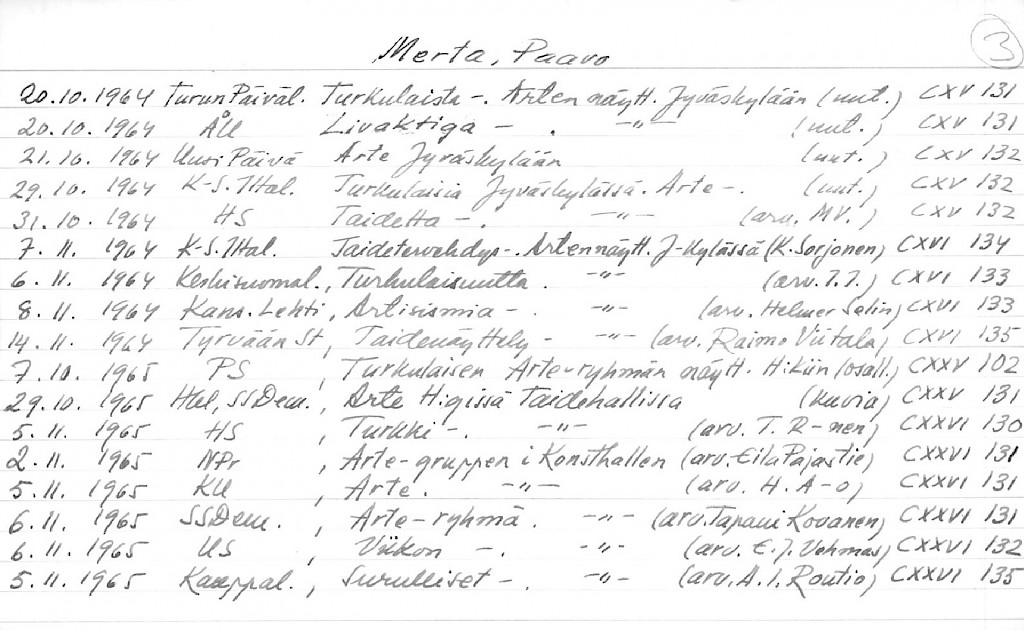 3
Merta, Paavo
20.10.1964 Turun Päiväl. Turkulaista -. Arten näytt. Jyväskylään (uut.) CXV 131
20.10.1964 ÅU Livaktiga - . -"- (uut.) CXV 131
21.10.1964 Uusi Päivä Arte Jyväskylään (uut.) CXV 132
29.10.1964 K-S. Iltal. Turkulaisia Jyväskylässä. Arte -. (uut.) CXV 132
31.10.1964 HS Taidetta -. -"- (arv. MV.) CXV 132
7.11.1964 K-S. Iltal. Taidetervehdys -. Arten näytt. J-kylässä (K. Sorjonen) CXVI 134
6.11.1964 Keskisuomal., Turkulaisuutta . -"- (arv. T.T.) CXVI 133
8.11.1964 Kans. Lehti, Artisismia -. -"- (arv. Helmer Selin) CXVI 133
14.11.1964 Tyrvään St, Taidenäyttely - -"- (arv. Raimo Viitala) CXVI 135
7.10.1965 PS , Turkulaisen Arte-ryhmän näytt. H:kiin (osall.) CXXV 102
29.10.1965 Hel, SSDem., Arte H:gissä Taidehallissa (kuvia) CXXV 131
5.11.1965 HS , Turkki -. -"- (arv. T. R-nen) CXXVI 130
2.11.1965 NPr , Arte-gruppen i Konsthallen (arv. Eila Pajastie) CXXVI 131
5.11.1965 KU , Arte. -"- (arv. H. A-o) CXXVI 131
6.11.1965 SSDem. , Arte-ryhmä . -"- (arv. Tapani Kovanen) CXXVI 131
6.11.1965 US , Viikon -. -"- (arv. E.J. Vehmas) CXXVI 132
5.11.1965 Kauppal., Surulliset -. -"- (arv. A.I. Routio) CXXVI 135